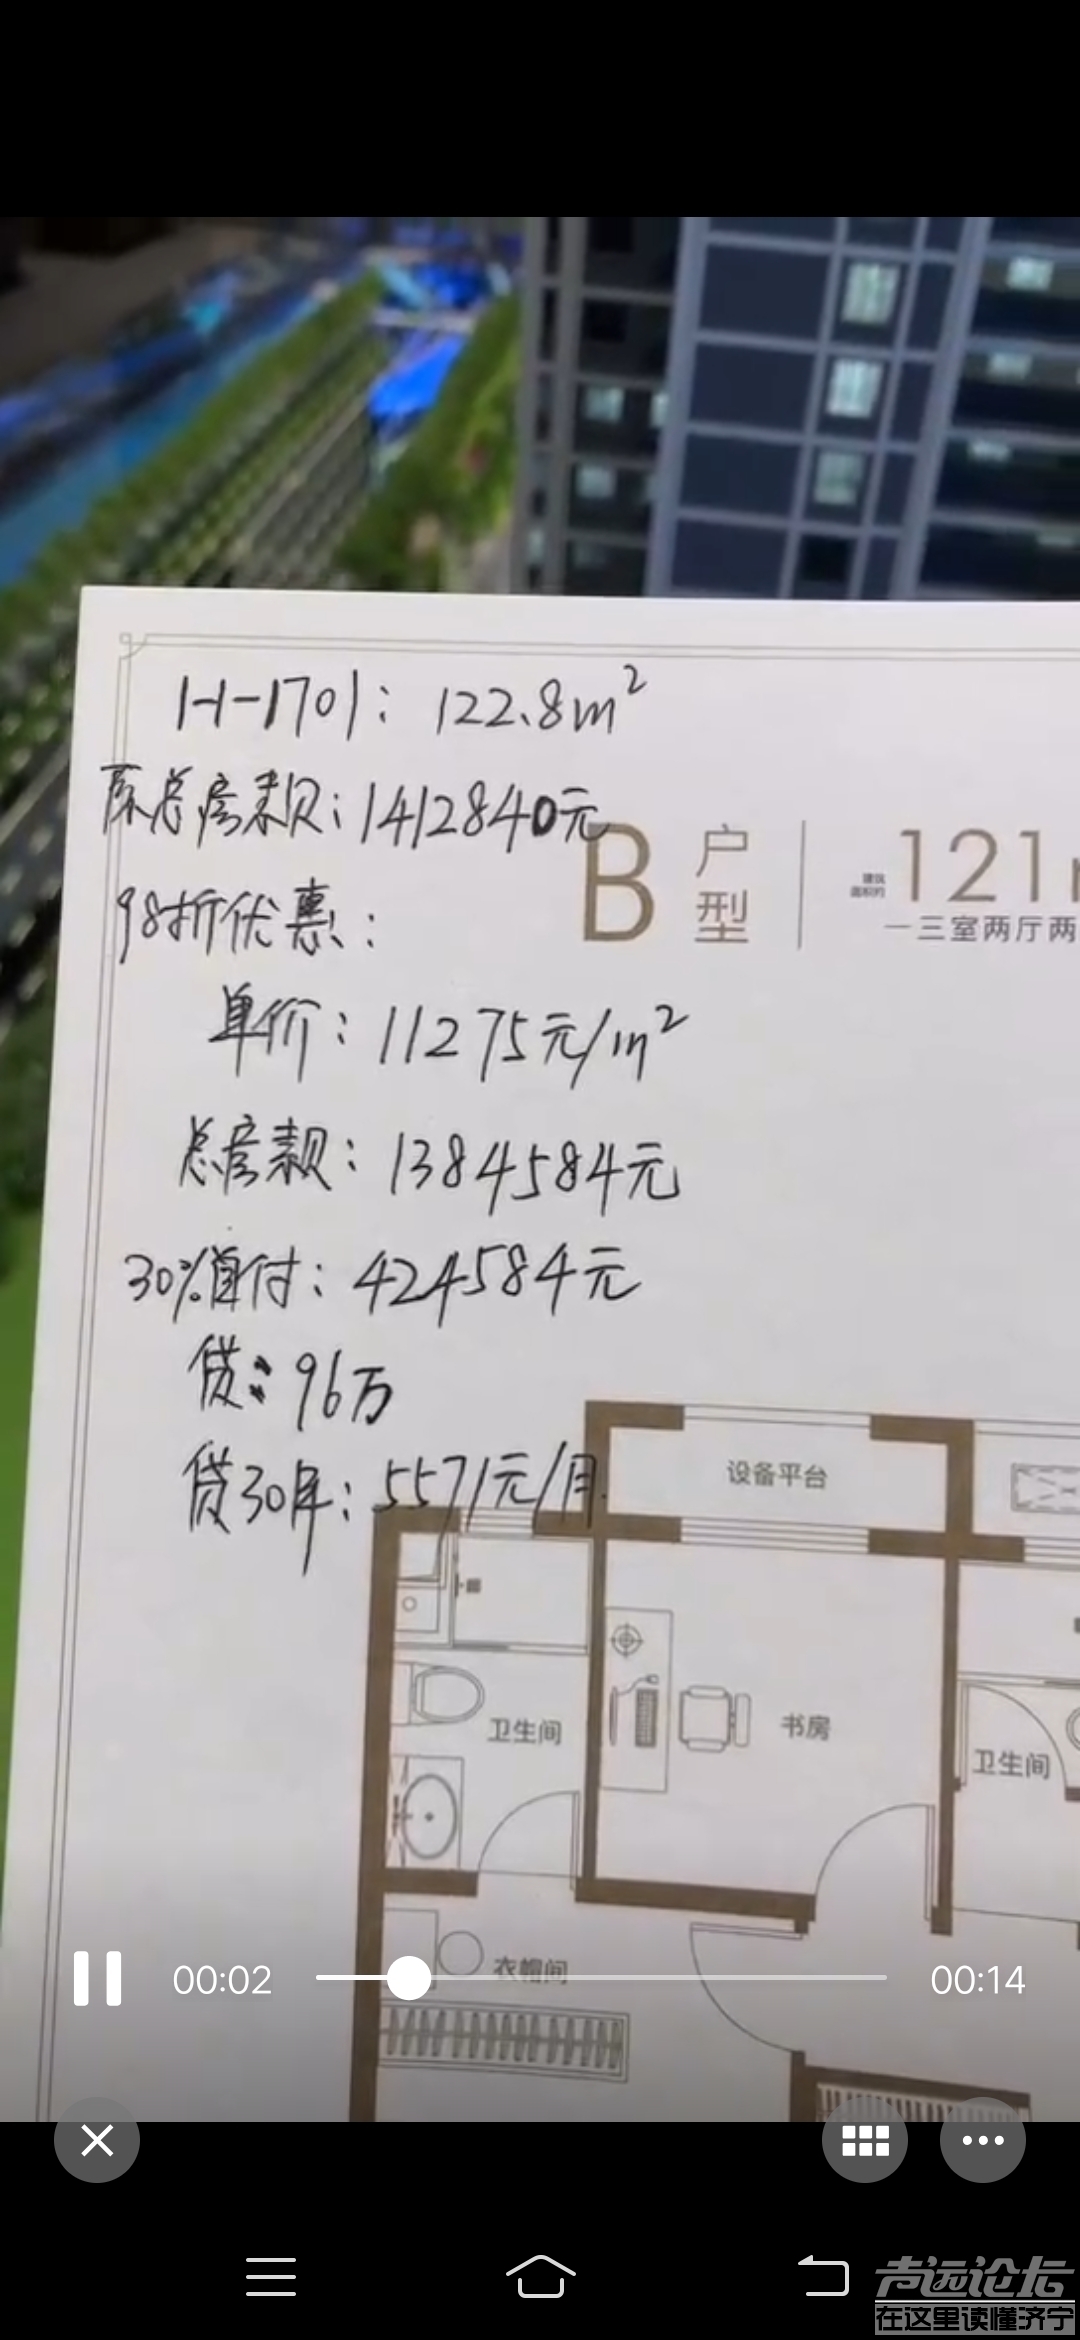 1-1-1701：122.8m²
原总房款：1412840元
B 户型
建筑面积约 121
一三室两厅两
98折优惠：
单价：11275元/m²
总房款：1384584元
30%首付：424584元
贷：96万
贷30年：5571元/月.
设备平台
卫生间
书房
卫生间
衣帽间
00:02
00:14
声远论坛
在这里读懂济宁